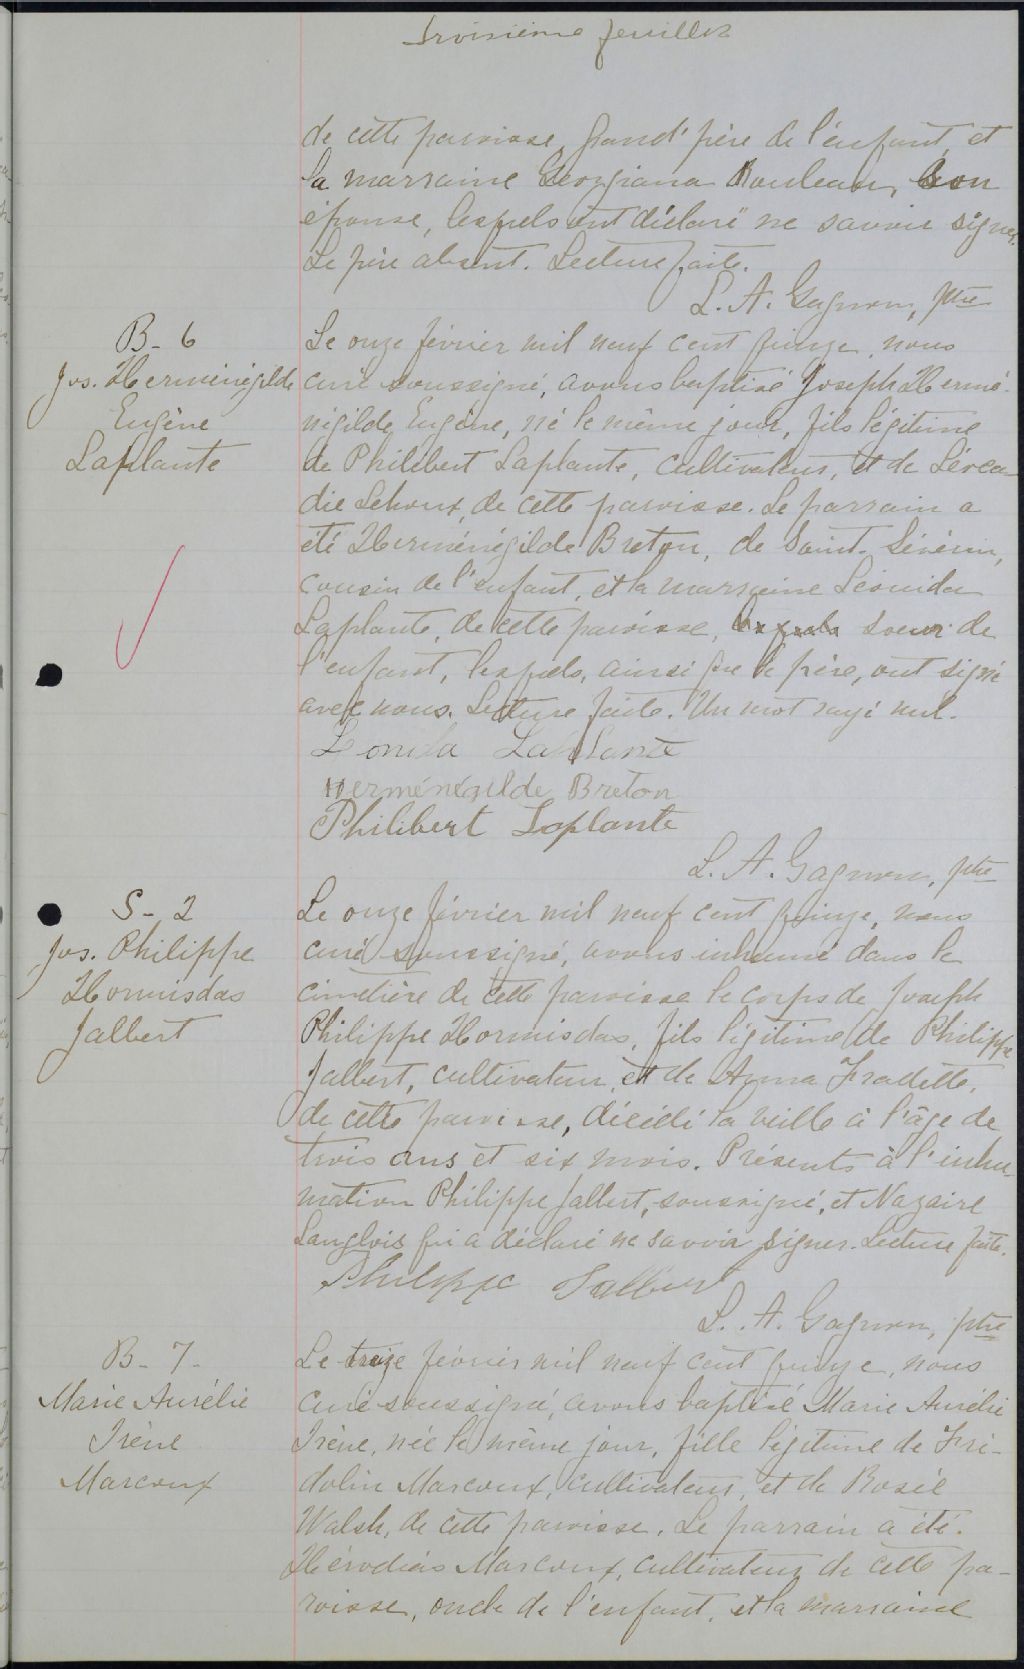 Troisième feuillet
de cette paroisse, grand'père de l'enfant, et
la marraine Georgiana Rouleau, son
épouse, lesquels ont déclaré ne savoir signer.
Le père absent. Lecture faite.
L. A. Gagnon, ptre
B - 6
Jos. Herménégilde
Eugène
Laplante
Le onze février mil neuf cent quinze, nous
curé soussigné, avons baptisé Joseph Hermé-
négilde Eugène, né le même jour, fils légitime
de Philibert Laplante, cultivateur, et de Léoca-
die Lehoux, de cette paroisse. Le parrain a
été Herménégilde Breton, de Saint-Séverin,
cousin de l'enfant, et la marraine Léonida
Laplante, de cette paroisse, soeur de
l'enfant, lesquels, ainsi que le père, ont signé
avec nous. Lecture faite. Un mot rayé nul.
Léonida Laplante
Herménégilde Breton
Philibert Laplante
L. A. Gagnon, ptre
S - 2
Jos. Philippe
Hormisdas
Jalbert
Le onze février mil neuf cent quinze, nous
curé soussigné, avons inhumé dans le
cimetière de cette paroisse le corps de Joseph
Philippe Hormisdas, fils légitime de Philippe
Jalbert, cultivateur, et de Anna Fradette,
de cette paroisse, décédé la veille à l'âge de
trois ans et six mois. Présents à l'inhu-
mation Philippe Jalbert, soussigné, et Nazaire
Langlois qui a déclaré ne savoir signer. Lecture faite.
Philippe Jalbert
L. A. Gagnon, ptre
B - 7 -
Marie Aurélie
Irène
Marcoux
Le treize février mil neuf cent quinze, nous
curé soussigné, avons baptisé Marie Aurélie
Irène, née le même jour, fille légitime de Fri-
dolin Marcoux, cultivateur, et de Rosée
Walsh, de cette paroisse. Le parrain a été
Hérodias Marcoux, cultivateur, de cette pa-
roisse, oncle de l'enfant, et la marraine